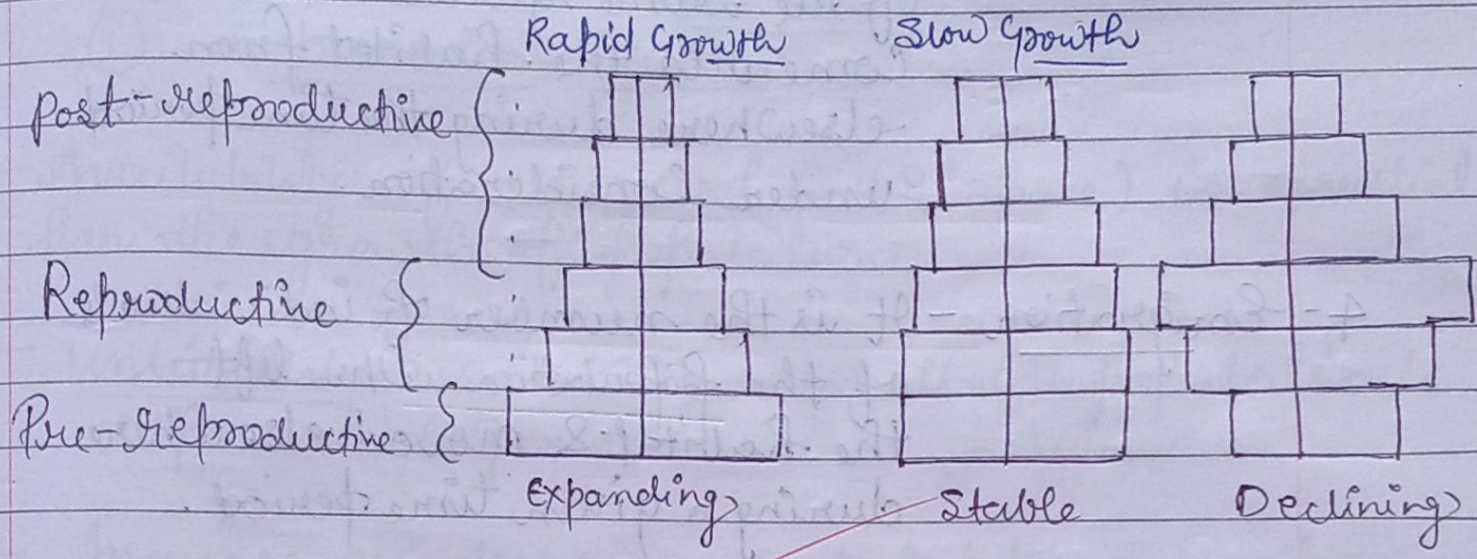 Rapid Growth Slow Growth
Post-reproductive
Reproductive
Pre-reproductive
Expanding Stable Declining